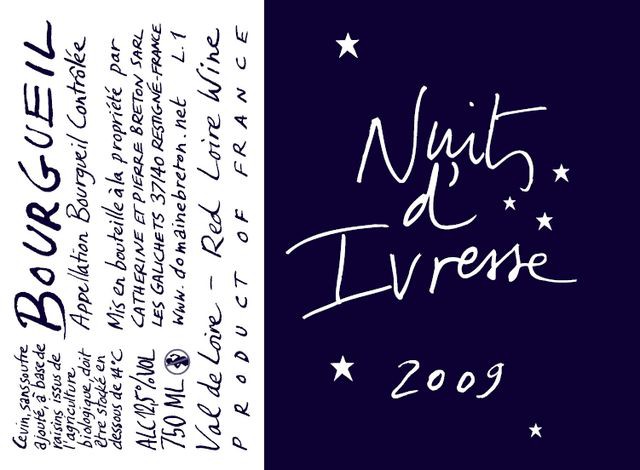 BOURGUEIL
Appellation Bourgueil Contrôlée
Mis en bouteille à la propriété par
CATHERINE ET PIERRE BRETON SARL
LES GALICHETS 37140 RESTIGNÉ-FRANCE
www.domainebreton.net L.1
Val de Loire - Red Loire Wine
PRODUCT OF FRANCE
Ce vin, sans soufre
ajouté, à base de
raisins issus de
l'agriculture
biologique, doit
être stocké en
dessous de 14°C
ALC 12,5% VOL
750 ML
Nuits
d'
Ivresse
2009